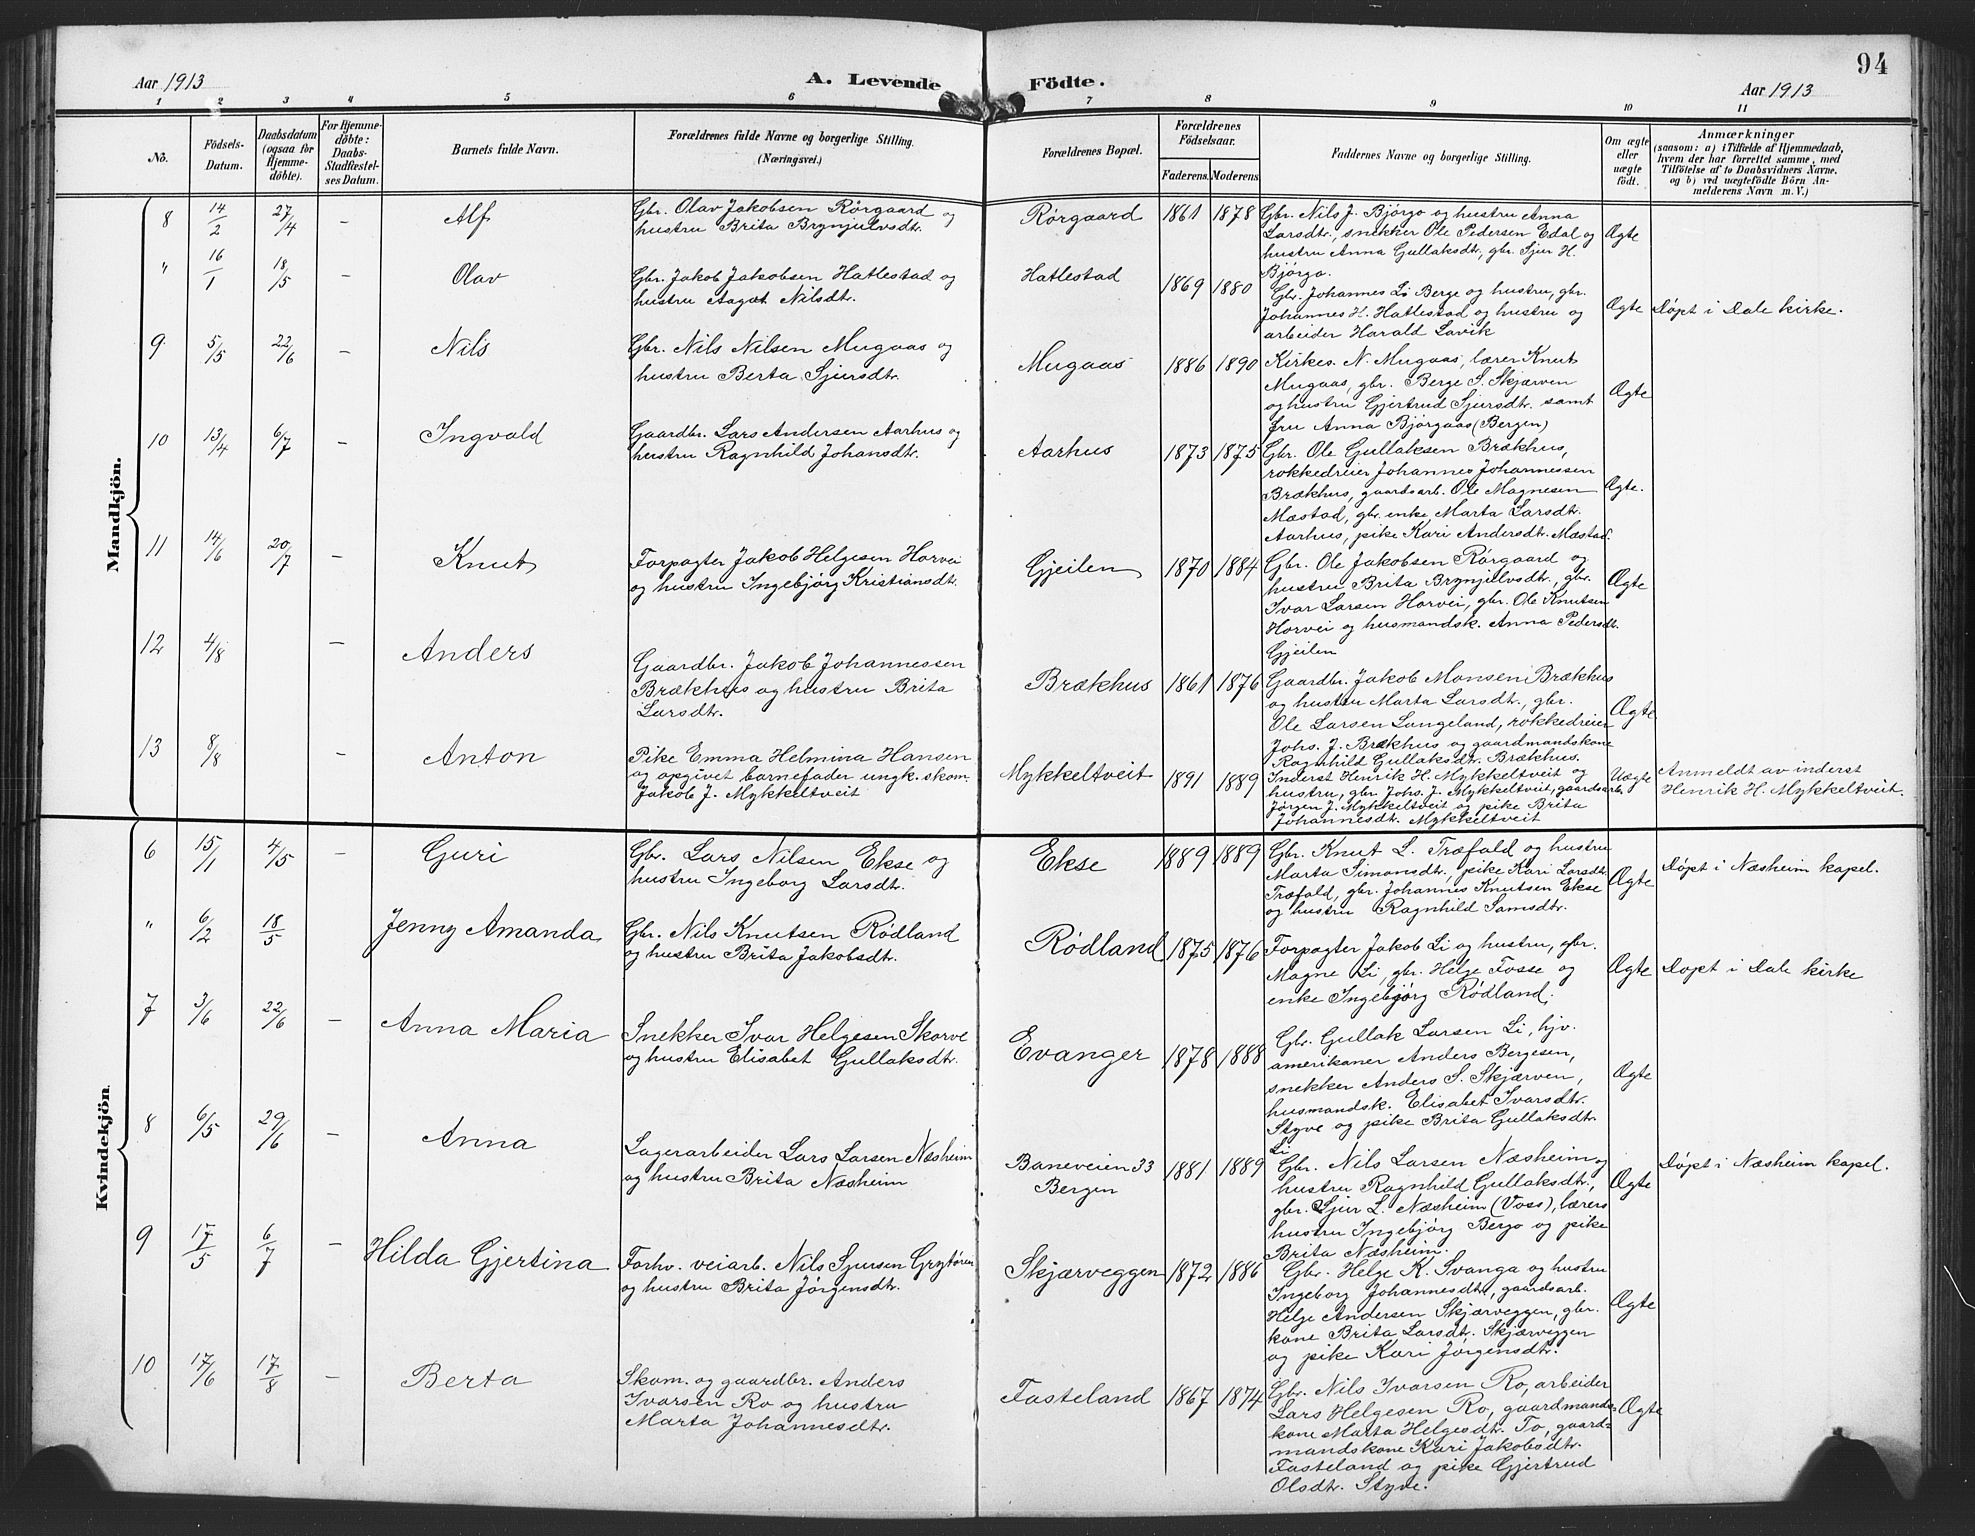 94
Aar 1913
A. Levende Födte.
Aar 1913
1 2 3 4 5 6 7 8 9 10 11
No.
Födsels-
Datum.
Daabsdatum
(ogsaa for
Hjemme-
döbte).
For Hjemme-
döbte:
Daabs-
Stadfæstel-
ses Datum.
Barnets fulde Navn.
Forældrenes fulde Navne og borgerlige Stilling.
(Næringsvei.)
Forældrenes Bopæl.
Forældrenes
Födselsaar.
Faderens. Moderens.
Faddernes Navne og borgerlige Stilling.
Om ægte
eller
uægte
födt.
Anmærkninger
(saasom: a) i Tilfælde af Hjemmedaab,
hvem der har forrettet samme, med
Tilföielse af to Daabsvidners Navne.
og b) ved uægtefödte Börn An-
melderens Navn m. V.)
Mandkjön.
8 14/2 27/4 — Alf
Gbr. Olav Jakobsen Rørgaard og
hustru Brita Brynjulvsdtr.
Rørgaard 1861 1878
Gbr. Nils J. Bjørgo og hustru Anna
Larsdtr., snekker Ole Pedersen Edal og
hustru Anna Gullaksdtr, gbr. Sjur H.
Bjørgo.
Ægte
" 16/1 18/5 — Olav
Gbr. Jakob Jakobsen Hatlestad og
hustru Aagot Nilsdtr.
Hatlestad 1869 1880
Gbr. Johannes Li Berge og hustru, gbr.
Johannes H. Hatlestad og hustru og
arbeider Harald Lavik
Ægte Døpt i Dale kirke.
9 5/5 22/6 — Nils
Gbr. Nils Nilsen Mugaas og
hustru Berta Sjursdtr.
Mugaas 1886 1890
Kirkes. N. Mugaas, lærer Knut
Mugaas, gbr. Berge S. Skjærven
og hustru Gjertrud Sjursdtr. samt
fru Anna Bjørgaas (Bergen)
Ægte
10 13/4 6/7 — Ingvald
Gaardbr. Lars Andersen Aarhus og
hustru Ragnhild Johansdtr.
Aarhus 1873 1875
Gbr. Ole Gullaksen Brækhus,
rokkedreier Johannes Johannessen
Brækhus, gaardsarb. Ole Magnesen
Mæstad, gbr. enke Marta Larsdtr.
Aarhus, pike Kari Andersdtr. Mæstad.
Ægte.
11 14/6 20/7 — Knut
Forpagter Jakob Helgesen Horvei
og hustru Ingebjørg Kristiansdtr.
Gjeilen 1870 1884
Gbr. Ole Jakobsen Rørgaard og
hustru Brita Brynjulvsdtr., gbr.
Ivar Larsen Horvei, gbr. Ole Knutsen
Horvei og husmandsk. Anna Pedersdt.
Gjeilen
Ægte
12 4/8 — Anders
Gaardbr. Jakob Johannessen
Brækhus og hustru Brita
Larsdtr.
Brækhus 1861 1876
Gaardbr. Jakob Monsen Brækhus
og hustru Marta Larsdtr., gbr.
Ole Larsen Langeland, rokkedreier
Johs. J. Brækhus og gaardmandskone
Ragnhild Gullaksdtr. Brækhus.
Ægte
13 8/8 — Anton
Pike Emma Helmina Hansen
og opgivet barnefader ungk. skom.
Jakob J. Mykkeltveit
Mykkeltveit 1891 1889
Inderst Henrik H. Mykkeltveit og
hustru, gbr. Johs. J. Mykkeltveit, gaardsarb.
Jørgen J. Mykkeltveit og pike Brita
Johannesdtr. Mykkeltveit
Uægte
Anmeldt av inderst
Henrik H. Mykkeltveit.
Kvindekjön.
6 15/1 4/5 — Guri
Gbr. Lars Nilsen Ekse og
hustru Ingeborg Larsdtr.
Ekse 1889 1889
Gbr. Knut L. Træfald og hustru
Marta Simonsdtr., pike Kari Larsdtr.
Træfald, gbr. Johannes Knutsen Ekse
og hustru Ragnhild Samsdtr.
Ægte Døpt i Næsheim kapel.
" 6/2 18/5 Jenny Amanda
Gbr. Nils Knutsen Rødland
og hustru Brita Jakobsdtr.
Rødland 1875 1876
Forpagter Jakob Li og hustru, gbr.
Magne Li, gbr. Helge Fosse og
enke Ingebjørg Rødland.
Ægte Døpt i Dale kirke
7 3/6 22/6 — Anna Maria
Snekker Ivar Helgesen Skorve
og hustru Elisabet Gullaksdtr.
Evanger 1878 1888
Gbr. Gullak Larsen Li, hjv.
amerikaner Anders Bergesen,
snekker Anders S. Skjærven,
husmandsk. Elisabet Ivarsdtr.
Styve og pike Brita Gullaksdtr.
Li
Ægte
8 6/5 29/6 — Anna
Lagerarbeider Lars Larsen Næsheim
og hustru Brita Næsheim
Baneveien 33
Bergen
1881 1889
Gbr. Nils Larsen Næsheim og
hustru Ragnhild Gullaksdtr.,
gbr. Sjur L. Næsheim (Voss), lærers
hustru Ingebjørg Bergo og pike
Brita Næsheim.
Ægte Døpt i Næsheim kapel.
9 17/5 6/7 — Hilda Gjertina
Forhv. veiarb. Nils Sjursen Grytøren
og hustru Brita Jørgensdtr.
Skjærveggen 1872 1886
Gbr. Helge K. Svanga og hustru
Ingeborg Johannesdtr, gaardsarb.
Helge Andersen Skjærveggen, gbr.
kone Brita Larsdtr. Skjærveggen
og pike Kari Jørgensdtr.
Ægte
10 17/6 17/8 — Berta
Skom. og gaardbr. Anders
Ivarsen Ro og hustru
Marta Johannesdtr.
Fasteland 1867 1874
Gbr. Nils Ivarsen Ro, arbeider
Lars Helgesen Ro, gaardmands-
kone Marta Helgesdtr. To, gaard-
mandskone Kari Jakobsdtr.
Fasteland og pike Gjertrud
Olsdtr. Styve.
Ægte